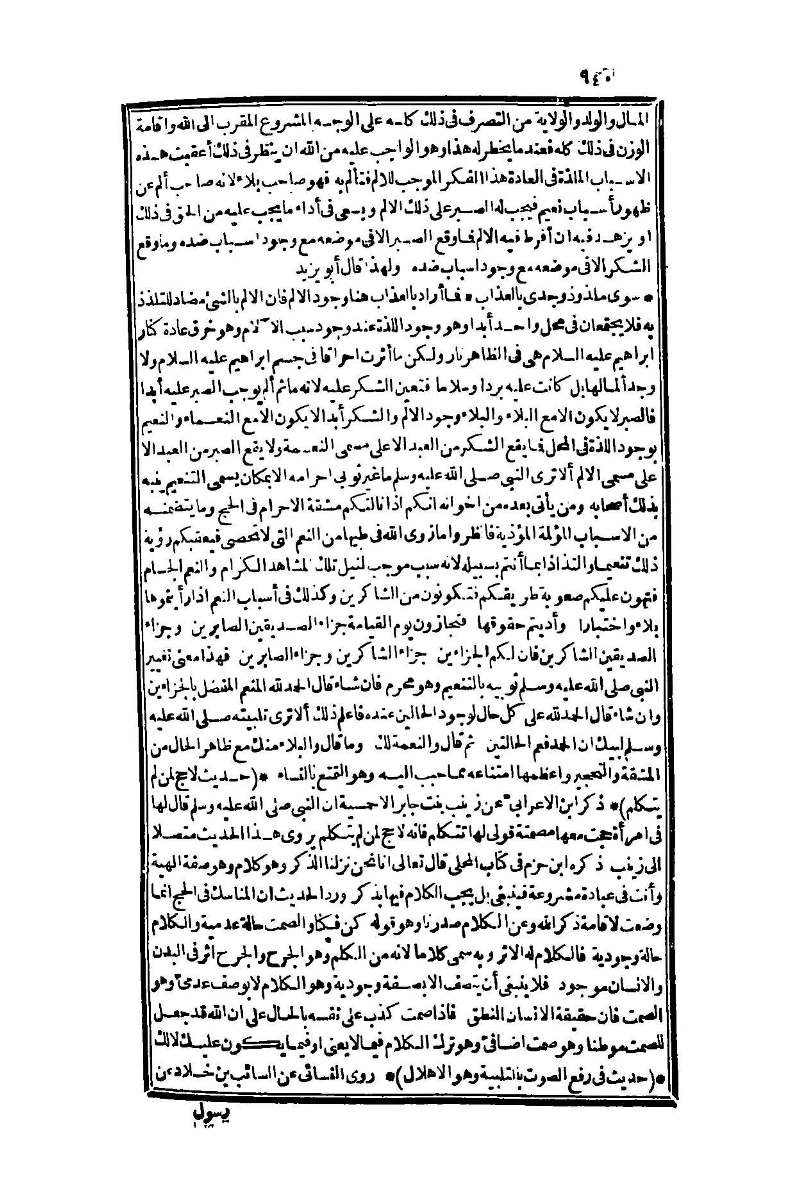 ٩٤٠
المال والولد والولاية من التصرف فى ذلك كله على الوجه المشروع المقرب الى الله واقامة
الوزن فى ذلك كله فعند ما يخطر له هذا وهو الواجب عليه من الله ان ينظر فى ذلك أعقبت هذه
الاسباب الملذة فى العادة هذا الفكر الموجب للالم فتألم به فهو صاحب بلاء لانه صاحب ألم عن
ظهور أسباب نعيم فيجب له الصبر على ذلك الالم ويسعى فى أداء ما يجب عليه من الحق فى ذلك
او يزهد فيه ان أفرط فيه الالم فما وقع الصبر الا فى موضعه مع وجود اسباب ضده وما وقع
الشكر الا فى موضعه مع وجود اسباب ضده ولهذا قال أبو يزيد
* سوى ملذوذ وجدى بالعذاب * فما أراد بالعذاب هنا وجود الالم فان الالم بالشئ مضاد للتلذذ
به فلا يجتمعان فى محل واحد أبدا وهو وجود اللذة عند وجود سبب الآلام وهو خرق عادة كنار
ابراهيم عليه السلام هى فى الظاهر نار ولكن ما أثرت احراقا فى جسم ابراهيم عليه السلام ولا
وجد ألما لها بل كانت عليه بردا وسلاما فتعين الشكر عليه لانه ما ثم ألم يوجب الصبر عليه أبدا
فالصبر لا يكون الا مع البلاء والبلاء وجود الالم والشكر أبدا لا يكون الا مع النعماء والنعيم
بوجود اللذة فى المحل فما يقع الشكر من العبد الا على مسمى النعمة ولا يقع الصبر من العبد الا
على مسمى الالم ألا ترى النبى صلى الله عليه وسلم ما غير ثوبى احرامه الا بمكان يسمى التنعيم فنبه
بذلك أصحابه ومن يأتى بعده من اخوانه انكم اذا نالتكم مشقة الاحرام فى الحج وما يتضمنه
من الاسباب المؤلمة المؤذية فانظروا ما زوى الله فى طيها من النعم التى لا تحصى فيعقبكم رؤية
ذلك تنعيما والتذاذا بما أنتم بسبيله لانه سبب موجب لنيل تلك المشاهد الكرام والنعم الجسام
فتهون عليكم صعوبة طريقكم فتكونون من الشاكرين وكذلك فى أسباب النعم اذا رأيتموها
بلاء واختبارا وأديتم حقوقها فتجازون يوم القيامة جزاء الصديقين الصابرين وجزاء
الصديقين الشاكرين فان لكم الجزاءين جزاء الشاكرين وجزاء الصابرين فهذا معنى تغيير
النبى صلى الله عليه وسلم ثوبيه بالتنعيم وهو محرم فان شاء قال الحمد لله المنعم المفضل بالجزاءين
وان شاء قال الحمد لله على كل حال لوجود الحالين عنده فاعلم ذلك ألا ترى تلبيته صلى الله عليه
وسلم لبيك ان الحمد فعم الحالتين ثم قال والنعمة لك وما قال والبلاء منك مع ظاهر الحال من
المشقة والتحجير واعظمها امتناعه مما حبب اليه وهو التمتع بالنساء *(حديث لا حج لمن لم
يتكلم)* ذكر ابن الاعرابى عن زينب بنت جابر الاحمسية ان النبى صلى الله عليه وسلم قال لها
فى امرأة حجت معها مصمتة قولى لها تتكلم فانه لا حج لمن لم يتكلم يروى هذا الحديث متصلا
الى زينب ذكره ابن حزم فى كتاب المحلى قال تعالى انا نحن نزلنا الذكر وهو كلام وهو صفة الهية
وأنت فى عبادة مشروعة فينبغى بل يجب الكلام فيها بذكر ورد الحديث ان المناسك فى الحج انما
وضعت لاقامة ذكر الله وعن الكلام صدرنا وهو قوله كن فكنا والصمت حالة عدمية والكلام
حالة وجودية فالكلام له الاثر وبه سمى كلاما لانه من الكلم وهو الجرح والجرح اثر فى البدن
والانسان موجود فلا ينبغى أن يتصف الا بصفة وجودية وهو الكلام لا بوصف عدمى وهو
الصمت فان حقيقة الانسان النطق فاذا صمت كذب على نفسه بالحال على ان الله قد جعل
للصمت موطنا وهو صمت اضافى وهو ترك الكلام فيما لا يعنى او فيما يكون عليك لا لك
*(حديث فى رفع الصوت بالتلبية وهو الاهلال)* روى النسائى عن السائب بن خلاد عن
رسول